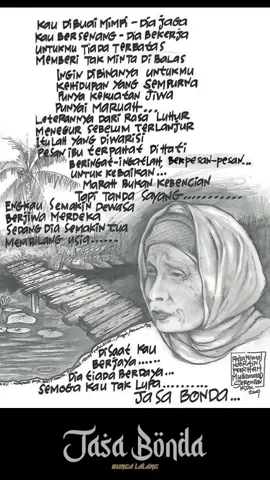 KAU DIBUAI MIMPI - DIA JAGA
KAU BERSENANG - DIA BEKERJA
UNTUKMU TIADA TERBATAS
MEMBERI TAK MINTA DI BALAS
INGIN DIBINANYA UNTUKMU
KEHIDUPAN YANG SEMPURNA
PUNYA KEKUATAN JIWA
PUNYAI MARUAH...
LETERANNYA DARI RASA LUHUR
MENEGUR SEBELUM TERLANJUR
ITULAH YANG DIWARISI
PESAN IBU TERPAHAT DI HATI
BERINGAT-INGATLAH, BERPESAN-PESAN...
UNTUK KEBAIKAN...
MARAH BUKAN KEBENCIAN
TAPI TANDA SAYANG............
ENGKAU SEMAKIN DEWASA
BERJIWA MERDEKA
SEDANG DIA SEMAKIN TUA
MEMBILANG USIA......
DISAAT KAU
BERJAYA......
DIA TIADA BERDAYA...
SEMOGA KAU TAK LUPA..........
JASA BONDA...
Jasa Bönda
BUNGA LALANG